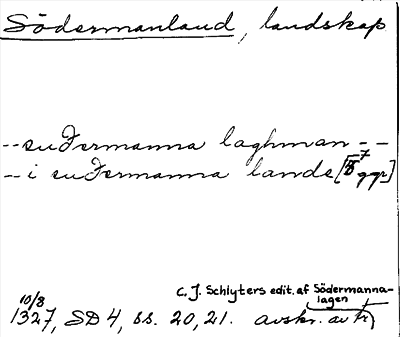 Södermanland, landskap
--suðermanna laghman--
--i suðermanna lande [7 ggr]
C. J. Schlyters edit. af Södermanna-
lagen
10/8
1327, SD 4, ss. 20, 21. avskr. av tr.